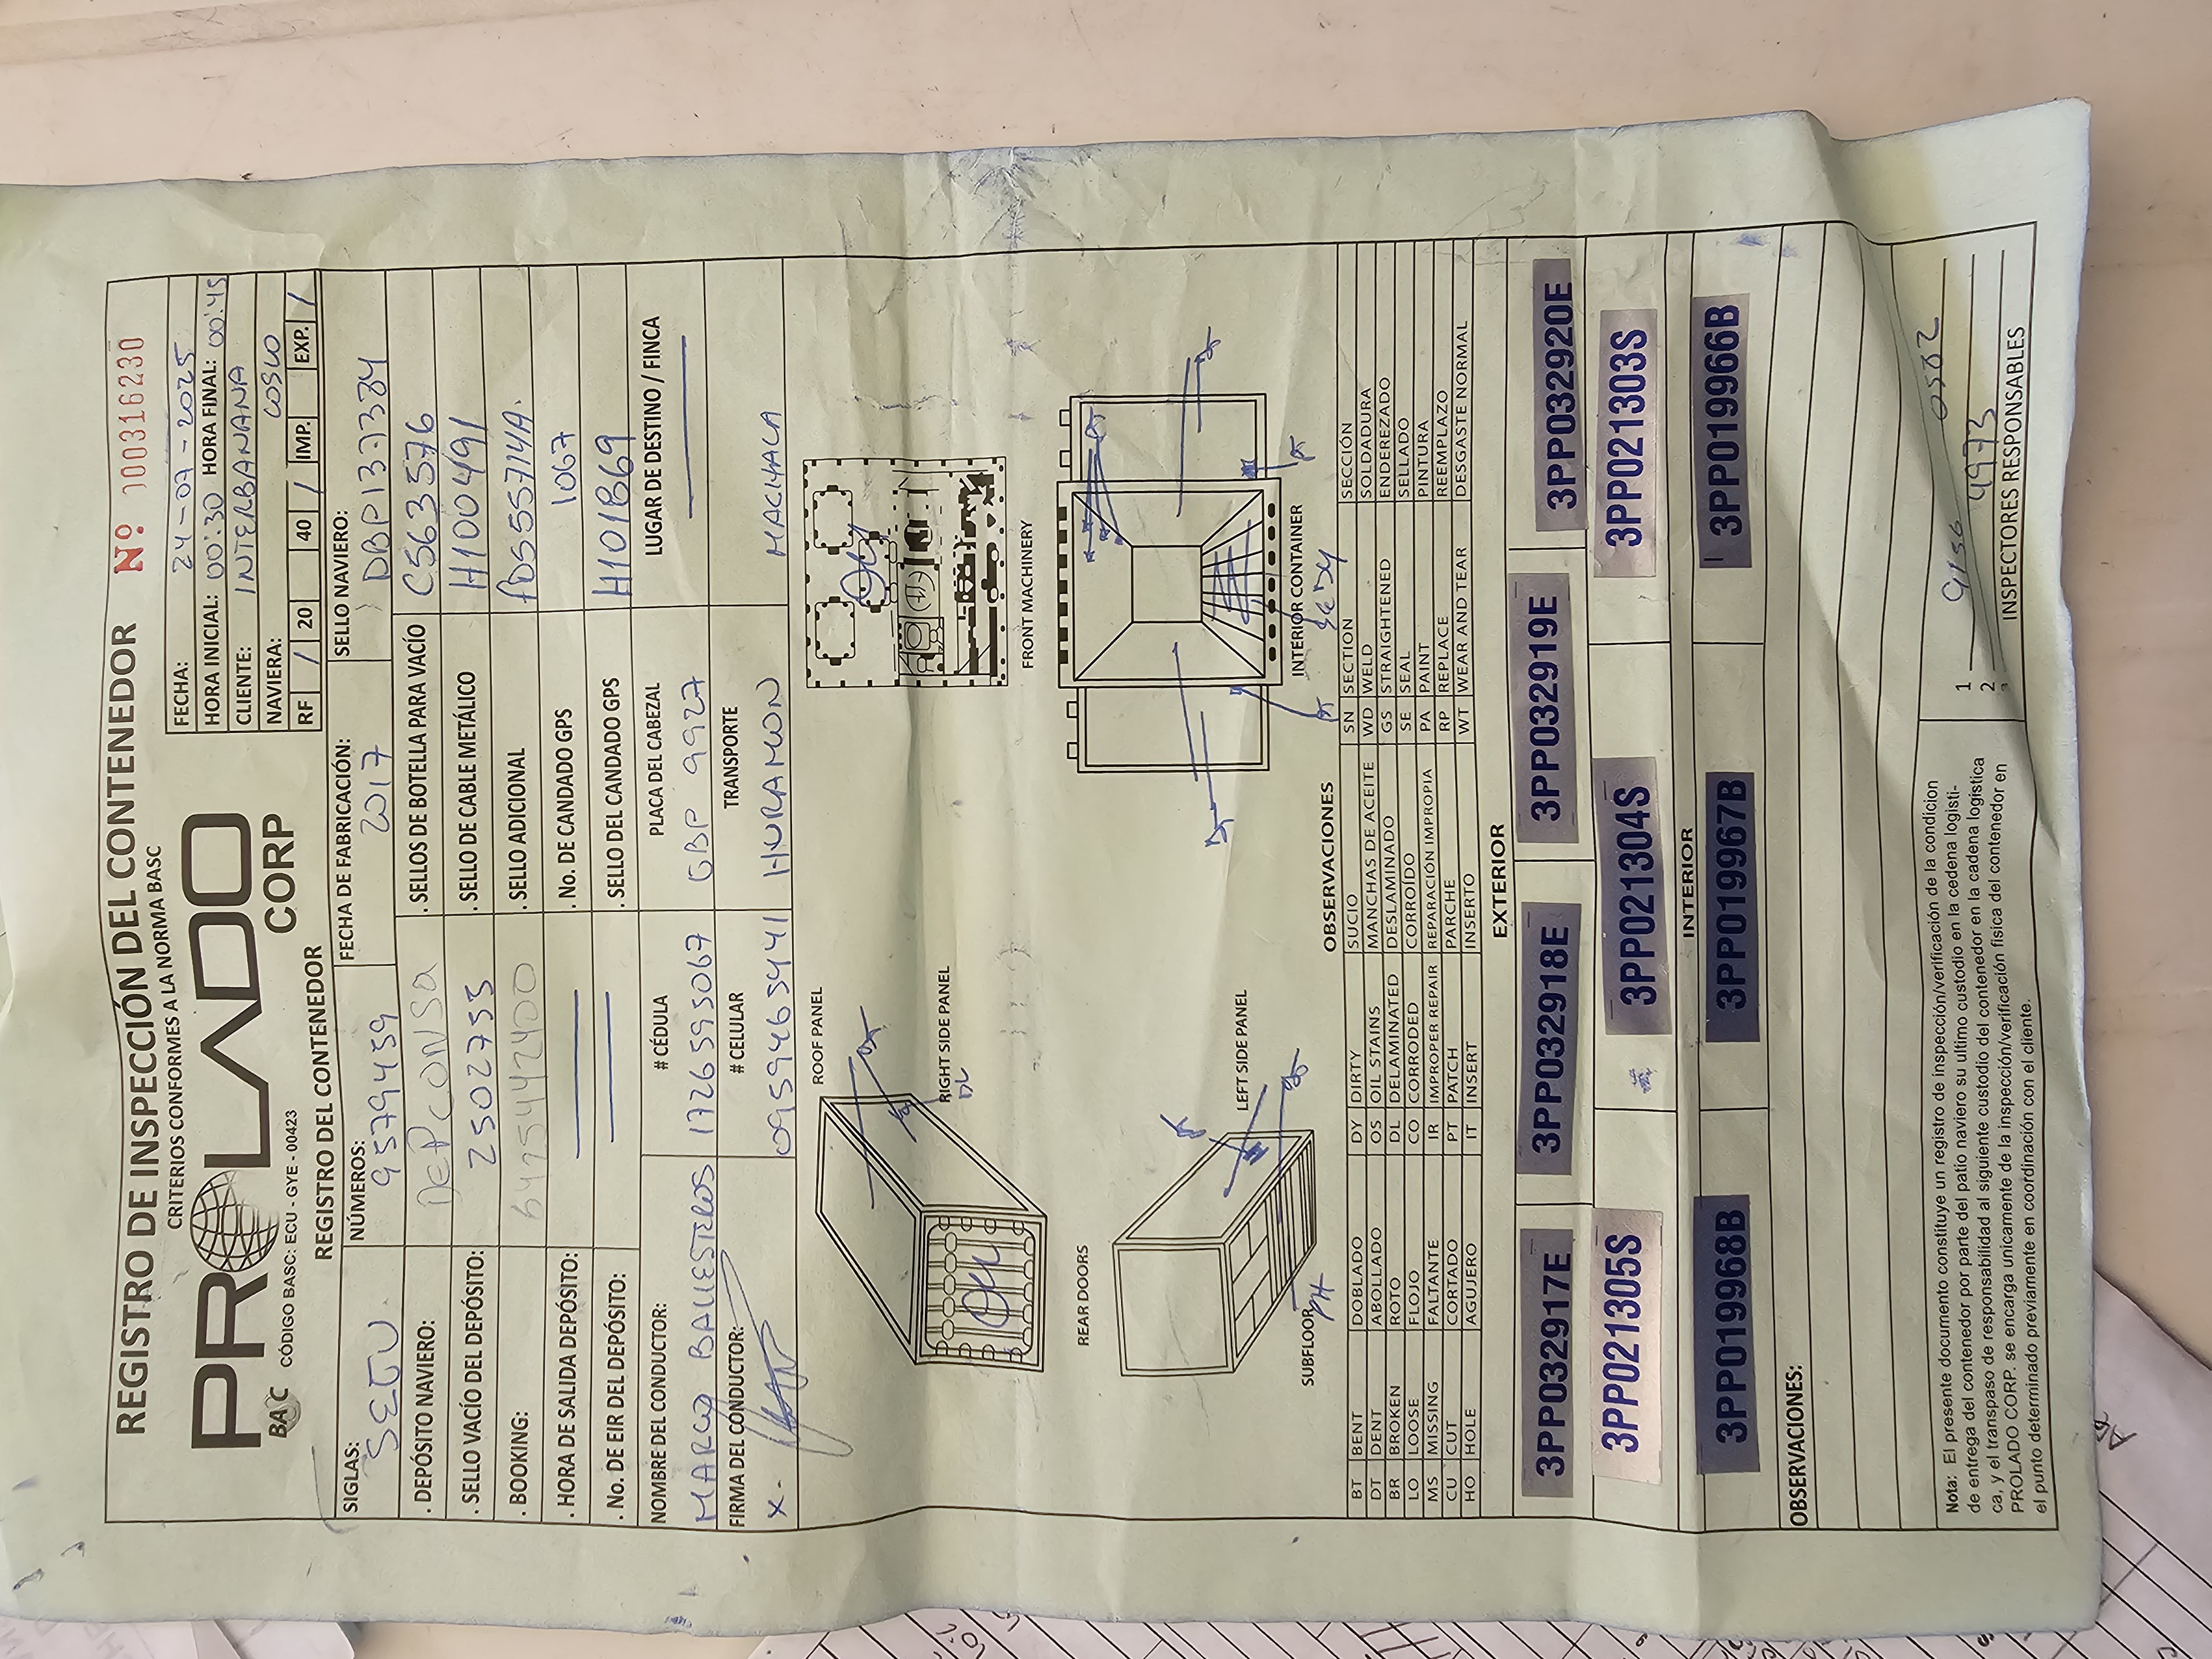 REGISTRO DE INSPECCIÓN DEL CONTENEDOR Nº 000316230
CRITERIOS CONFORMES A LA NORMA BASC
PROLADO
CORP
CÓDIGO BASC: ECU - GYE - 00423
FECHA: 24-07-2025
HORA INICIAL: 00:30 HORA FINAL: 00:45
CLIENTE: INTERBANANA
NAVIERA: COSCO
RF / 20 40 / IMP. EXP. /
REGISTRO DEL CONTENEDOR
SIGLAS: NÚMEROS: FECHA DE FABRICACIÓN: SELLO NAVIERO:
SEGU 9579459 2017 DBP137384
. DEPÓSITO NAVIERO: DEPCONSA . SELLOS DE BOTELLA PARA VACÍO C563576
. SELLO VACÍO DEL DEPÓSITO: 2502755 . SELLO DE CABLE METÁLICO H100491
. BOOKING: 6425442400 . SELLO ADICIONAL
. HORA DE SALIDA DEPÓSITO: . No. DE CANDADO GPS 1067
. No. DE EIR DEL DEPÓSITO: . SELLO DEL CANDADO GPS H101869
NOMBRE DEL CONDUCTOR: # CÉDULA PLACA DEL CABEZAL LUGAR DE DESTINO / FINCA
MARCO BALLESTEROS 1726595067 GBP 9927
FIRMA DEL CONDUCTOR: # CELULAR TRANSPORTE
X. 0959465441 HURAMON MACHALA
ROOF PANEL
RIGHT SIDE PANEL
DL
FRONT MACHINERY
REAR DOORS
LEFT SIDE PANEL
SUBFLOOR
INTERIOR CONTAINER
OBSERVACIONES
BT BENT DOBLADO DY DIRTY SUCIO SN SECTION SECCIÓN
DT DENT ABOLLADO OS OIL STAINS MANCHAS DE ACEITE WD WELD SOLDADURA
BR BROKEN ROTO DL DELAMINATED DESLAMINADO GS STRAIGHTENED ENDEREZADO
LO LOOSE FLOJO CO CORRODED CORROÍDO SE SEAL SELLADO
MS MISSING FALTANTE IR IMPROPER REPAIR REPARACIÓN IMPROPIA PA PAINT PINTURA
CU CUT CORTADO PT PATCH PARCHE RP REPLACE REEMPLAZO
HO HOLE AGUJERO IT INSERT INSERTO WT WEAR AND TEAR DESGASTE NORMAL
EXTERIOR
3PP032917E 3PP032918E 3PP032919E 3PP032920E
3PP021305S 3PP021304S 3PP021303S
INTERIOR
3PP019968B 3PP019967B 3PP019966B
OBSERVACIONES:
Nota: El presente documento constituye un registro de inspección/verificación de la condicion
de entrega del contenedor por parte del patio naviero su ultimo custodio en la cedena logisti-
ca, y el transpaso de responsabilidad al siguiente custodio del contenedor en la cadena logística
PROLADO CORP. se encarga unicamente de la inspección/verificación fisica del contenedor en
el punto determinado previamente en coordinación con el cliente.
1 0582
2 4973
INSPECTORES RESPONSABLES